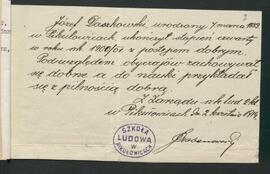 Józef Daszkowski, urodzony 7 marca 1889
w Pikułowicach, ukończył stopień czwarty
w roku szk. 1900/01 z postępem dobrym.
Pod względem obyczajów zachowywał
się dobrze a do nauki przykładał
się z pilnością dobrą.
Z Zarządu szk. lud. 2 kl.
w Pikułowicach, dn. 2 kwietnia
SZKOŁA
LUDOWA
W
PIKUŁOWICACH